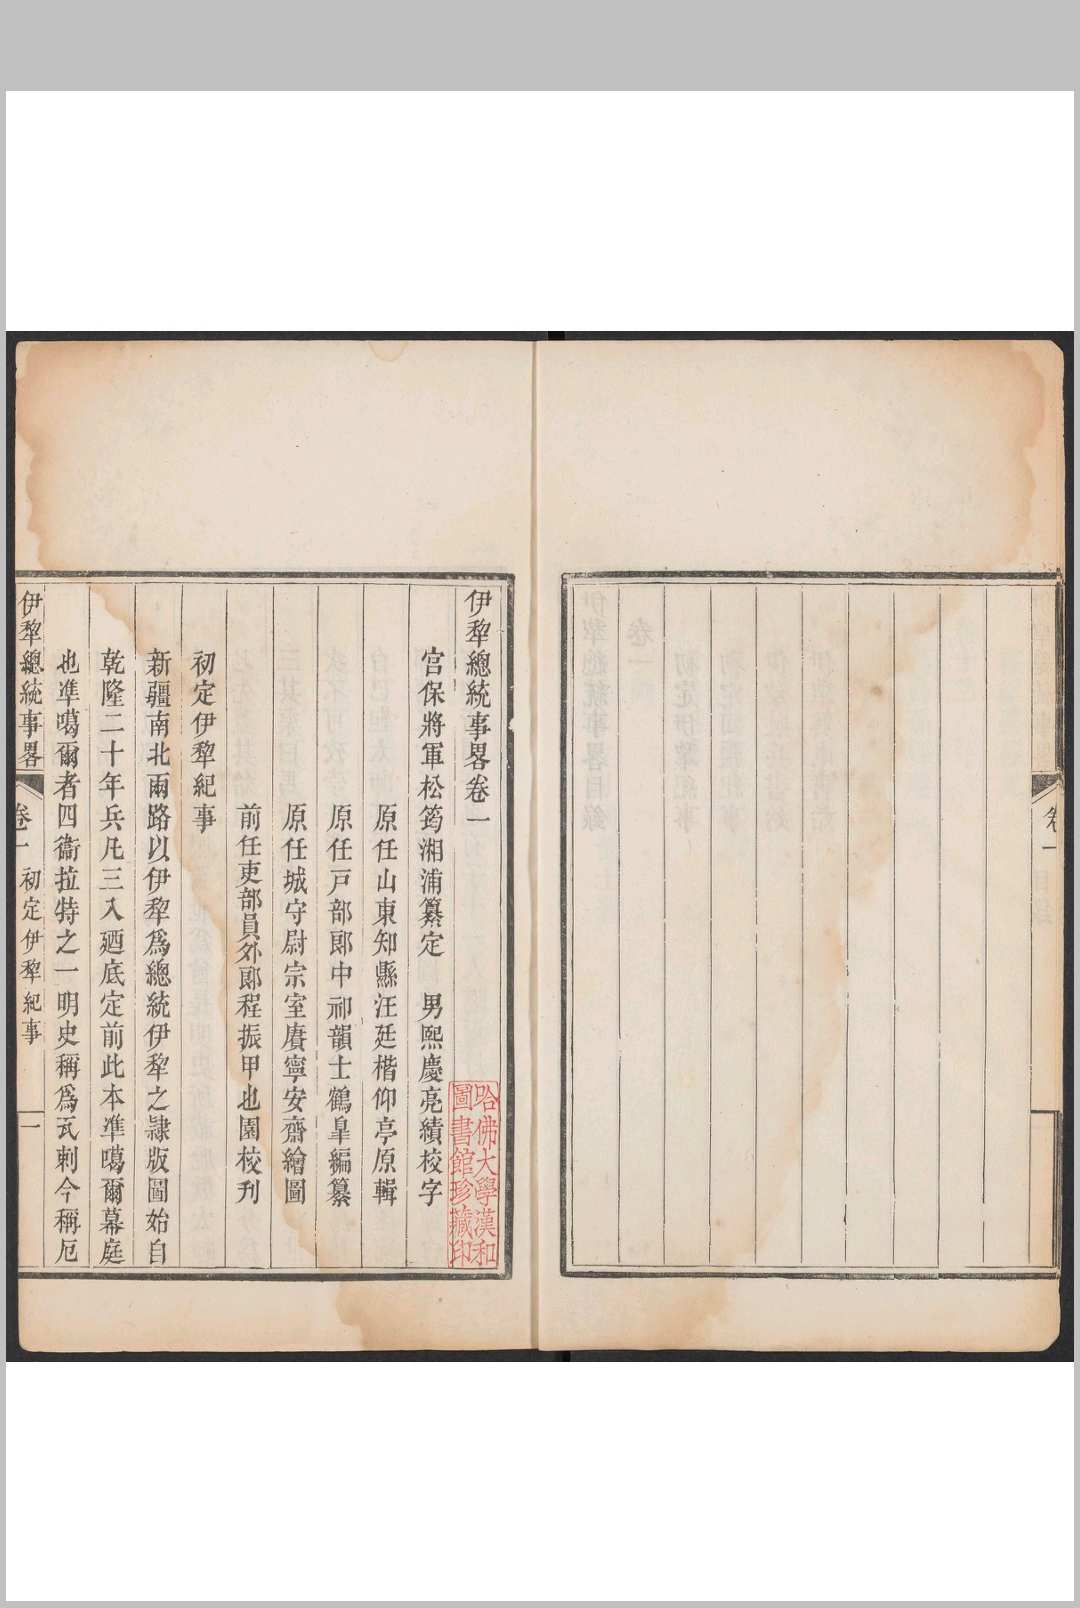 卷一
伊犂總統事畧卷一
宫保將軍松筠湘浦纂定　男熙慶亮績校字
原任山東知縣汪廷楷仰亭原輯
原任戸部郎中祁韻士鶴臯編纂
原任城守尉宗室賡寧安齋繪圖
前任吏部員外郎程振甲也園校刋
初定伊犂紀事
新疆南北兩路以伊犂爲總統伊犂之隷版圖始自
乾隆二十年兵凡三入廼底定前此本凖噶爾幕庭
也凖噶爾者四衞拉特之一明史稱爲瓦剌今稱厄
伊犂總統事畧　卷一　初定伊犂紀事　一
哈佛大學漢和
圖書館珍藏印